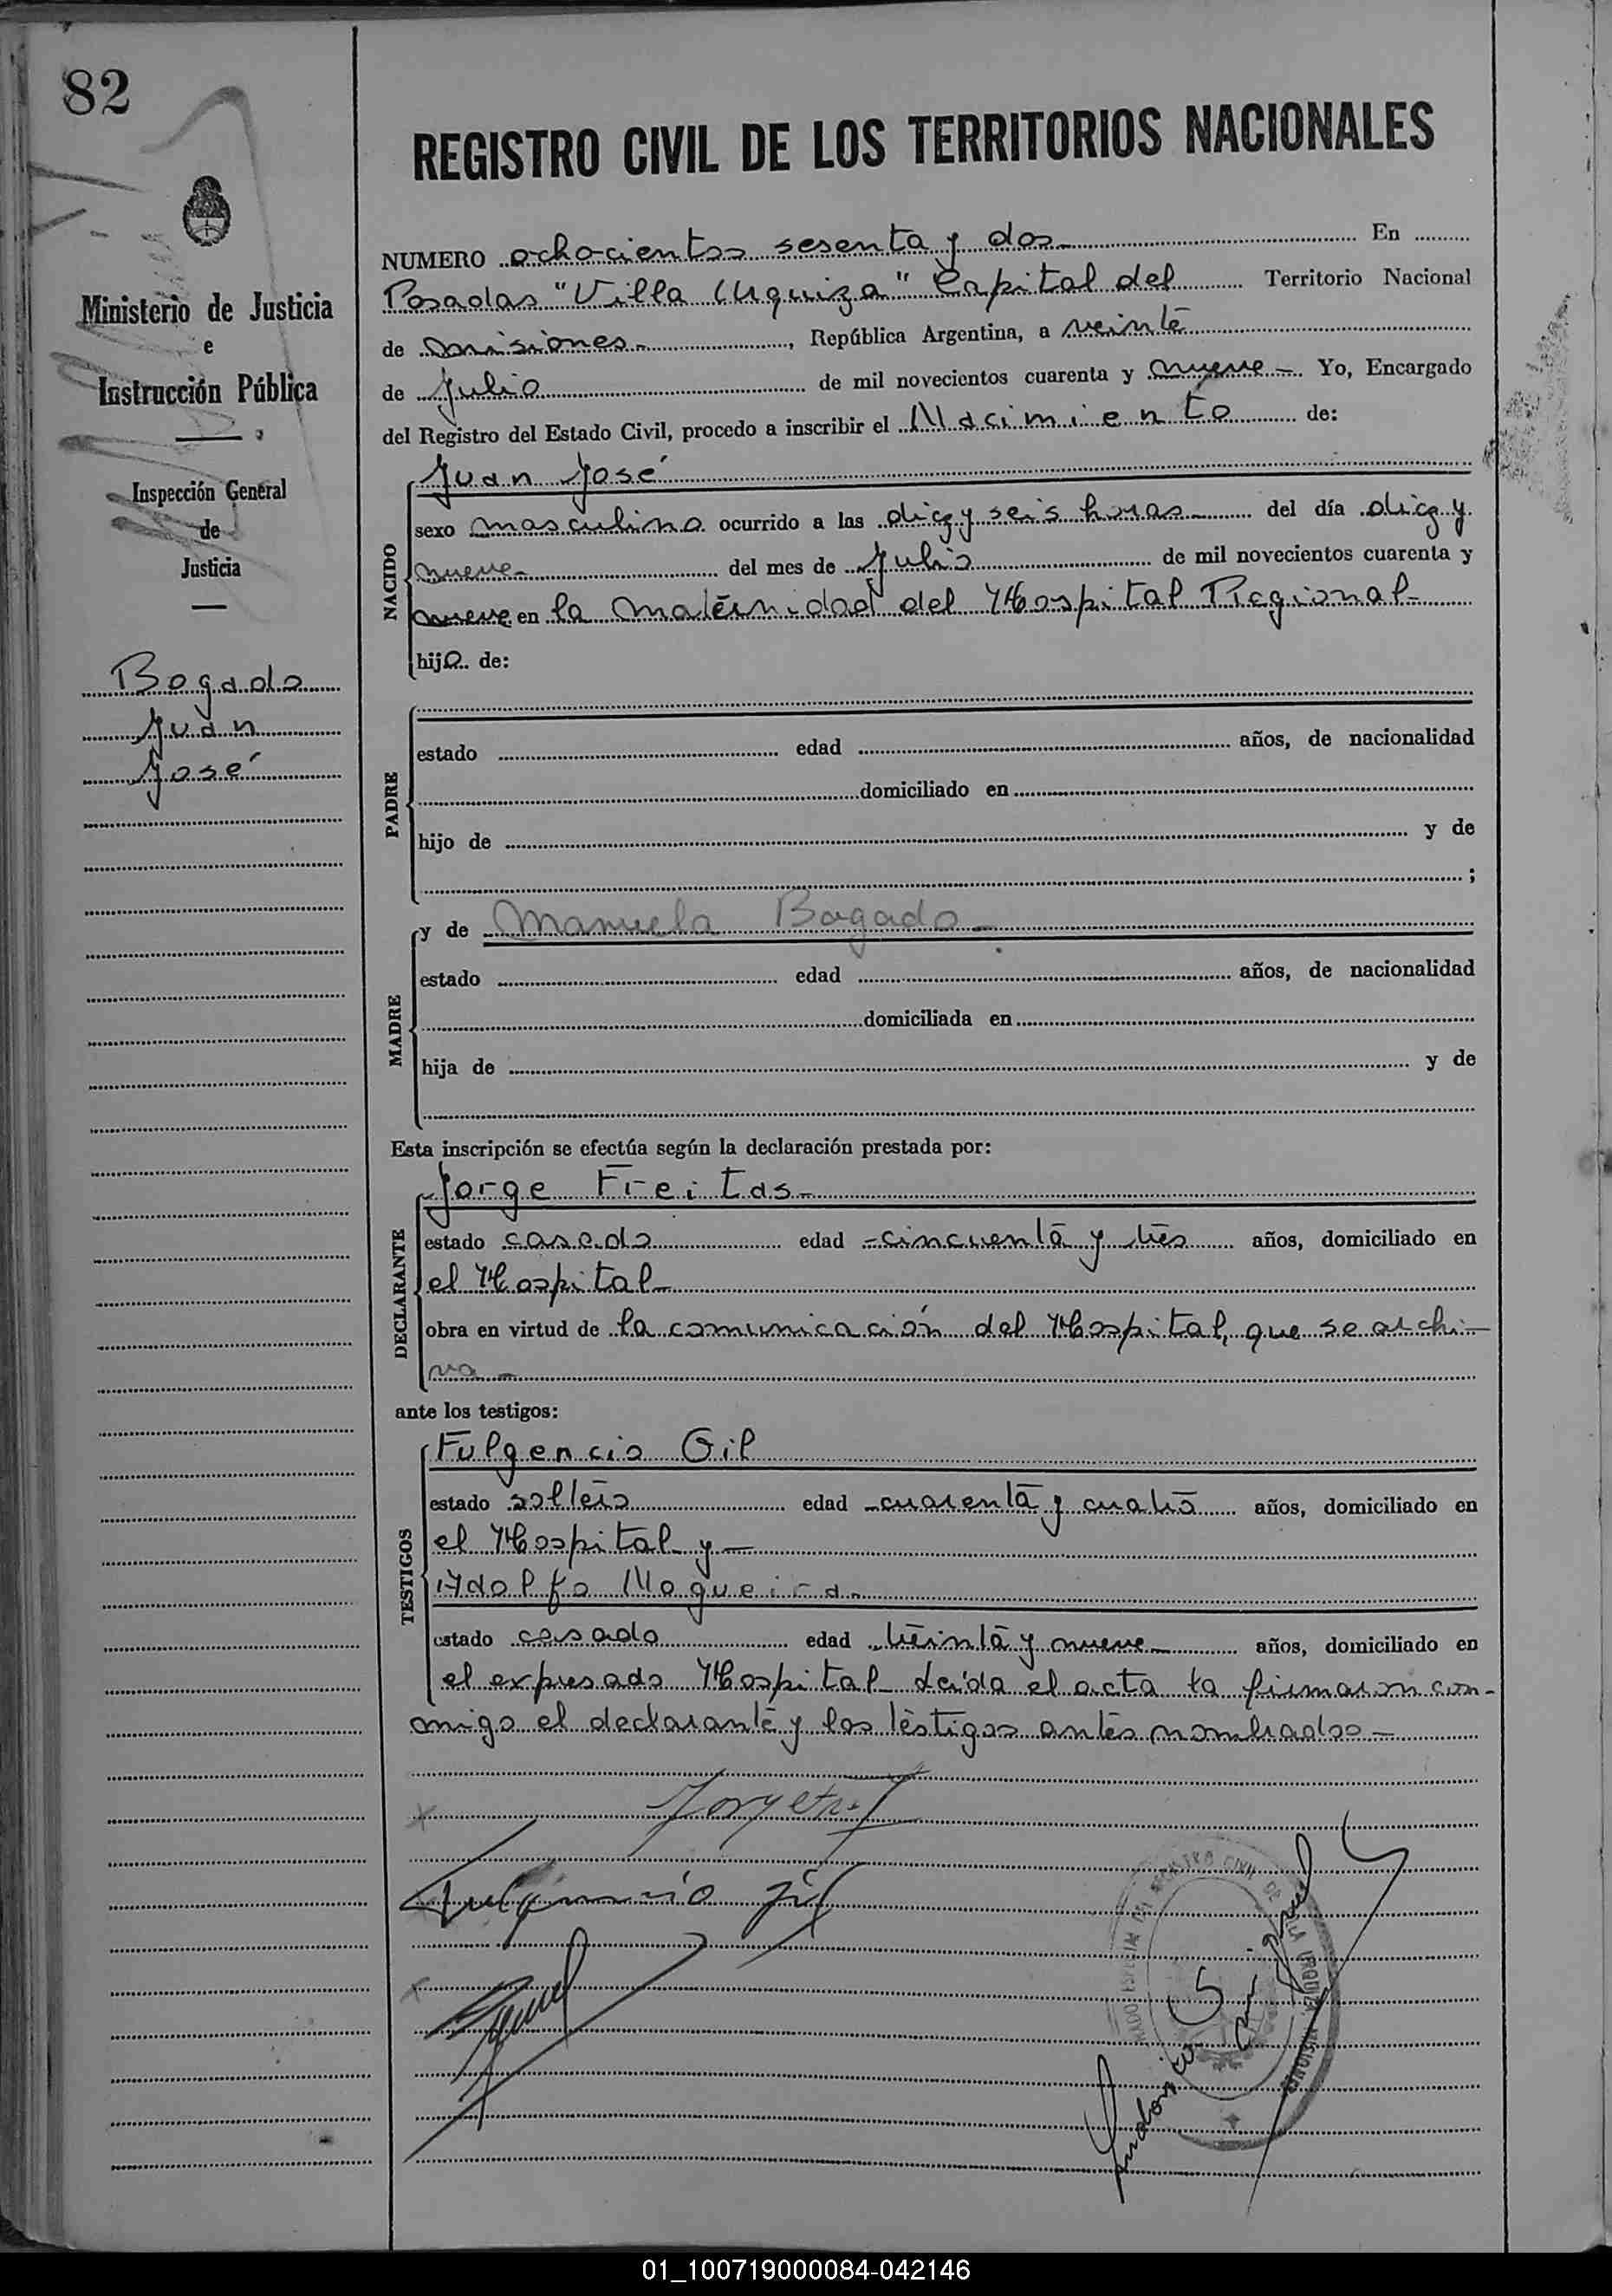 82
REGISTRO CIVIL DE LOS TERRITORIOS NACIONALES
Ministerio de Justicia
e
Instrucción Pública
Inspección General
de
Justicia
Bogado
Juan
José
NUMERO ochocientos sesenta y dos En
Posadas "Villa Urquiza" Capital del Territorio Nacional
de Misiones, República Argentina, a veinte
de Julio de mil novecientos cuarenta y nueve Yo, Encargado
del Registro del Estado Civil, procedo a inscribir el Nacimiento de:
NACIDO
Juan José
sexo masculino ocurrido a las diez y seis horas del día diez y
nueve del mes de Julio de mil novecientos cuarenta y
nueve en la Maternidad del Hospital Regional
hijo de:
PADRE
estado edad años, de nacionalidad
domiciliado en
hijo de y de
;
MADRE
y de Manuela Bogado
estado edad años, de nacionalidad
domiciliada en
hija de y de
Esta inscripción se efectúa según la declaración prestada por:
DECLARANTE
Jorge Freitas
estado casado edad cincuenta y tres años, domiciliado en
el Hospital
obra en virtud de la comunicación del Hospital, que se archi-
va
ante los testigos:
TESTIGOS
Fulgencio Gil
estado soltero edad cuarenta y cuatro años, domiciliado en
el Hospital y
Adolfo Nogueira
estado casado edad treinta y nueve años, domiciliado en
el expresado Hospital Leída el acta la firmaron con-
migo el declarante y los testigos antes nombrados
Fulgencio Gil
REGISTRO CIVIL DE VILLA URQUIZA MISIONES
01_100719000084-042146